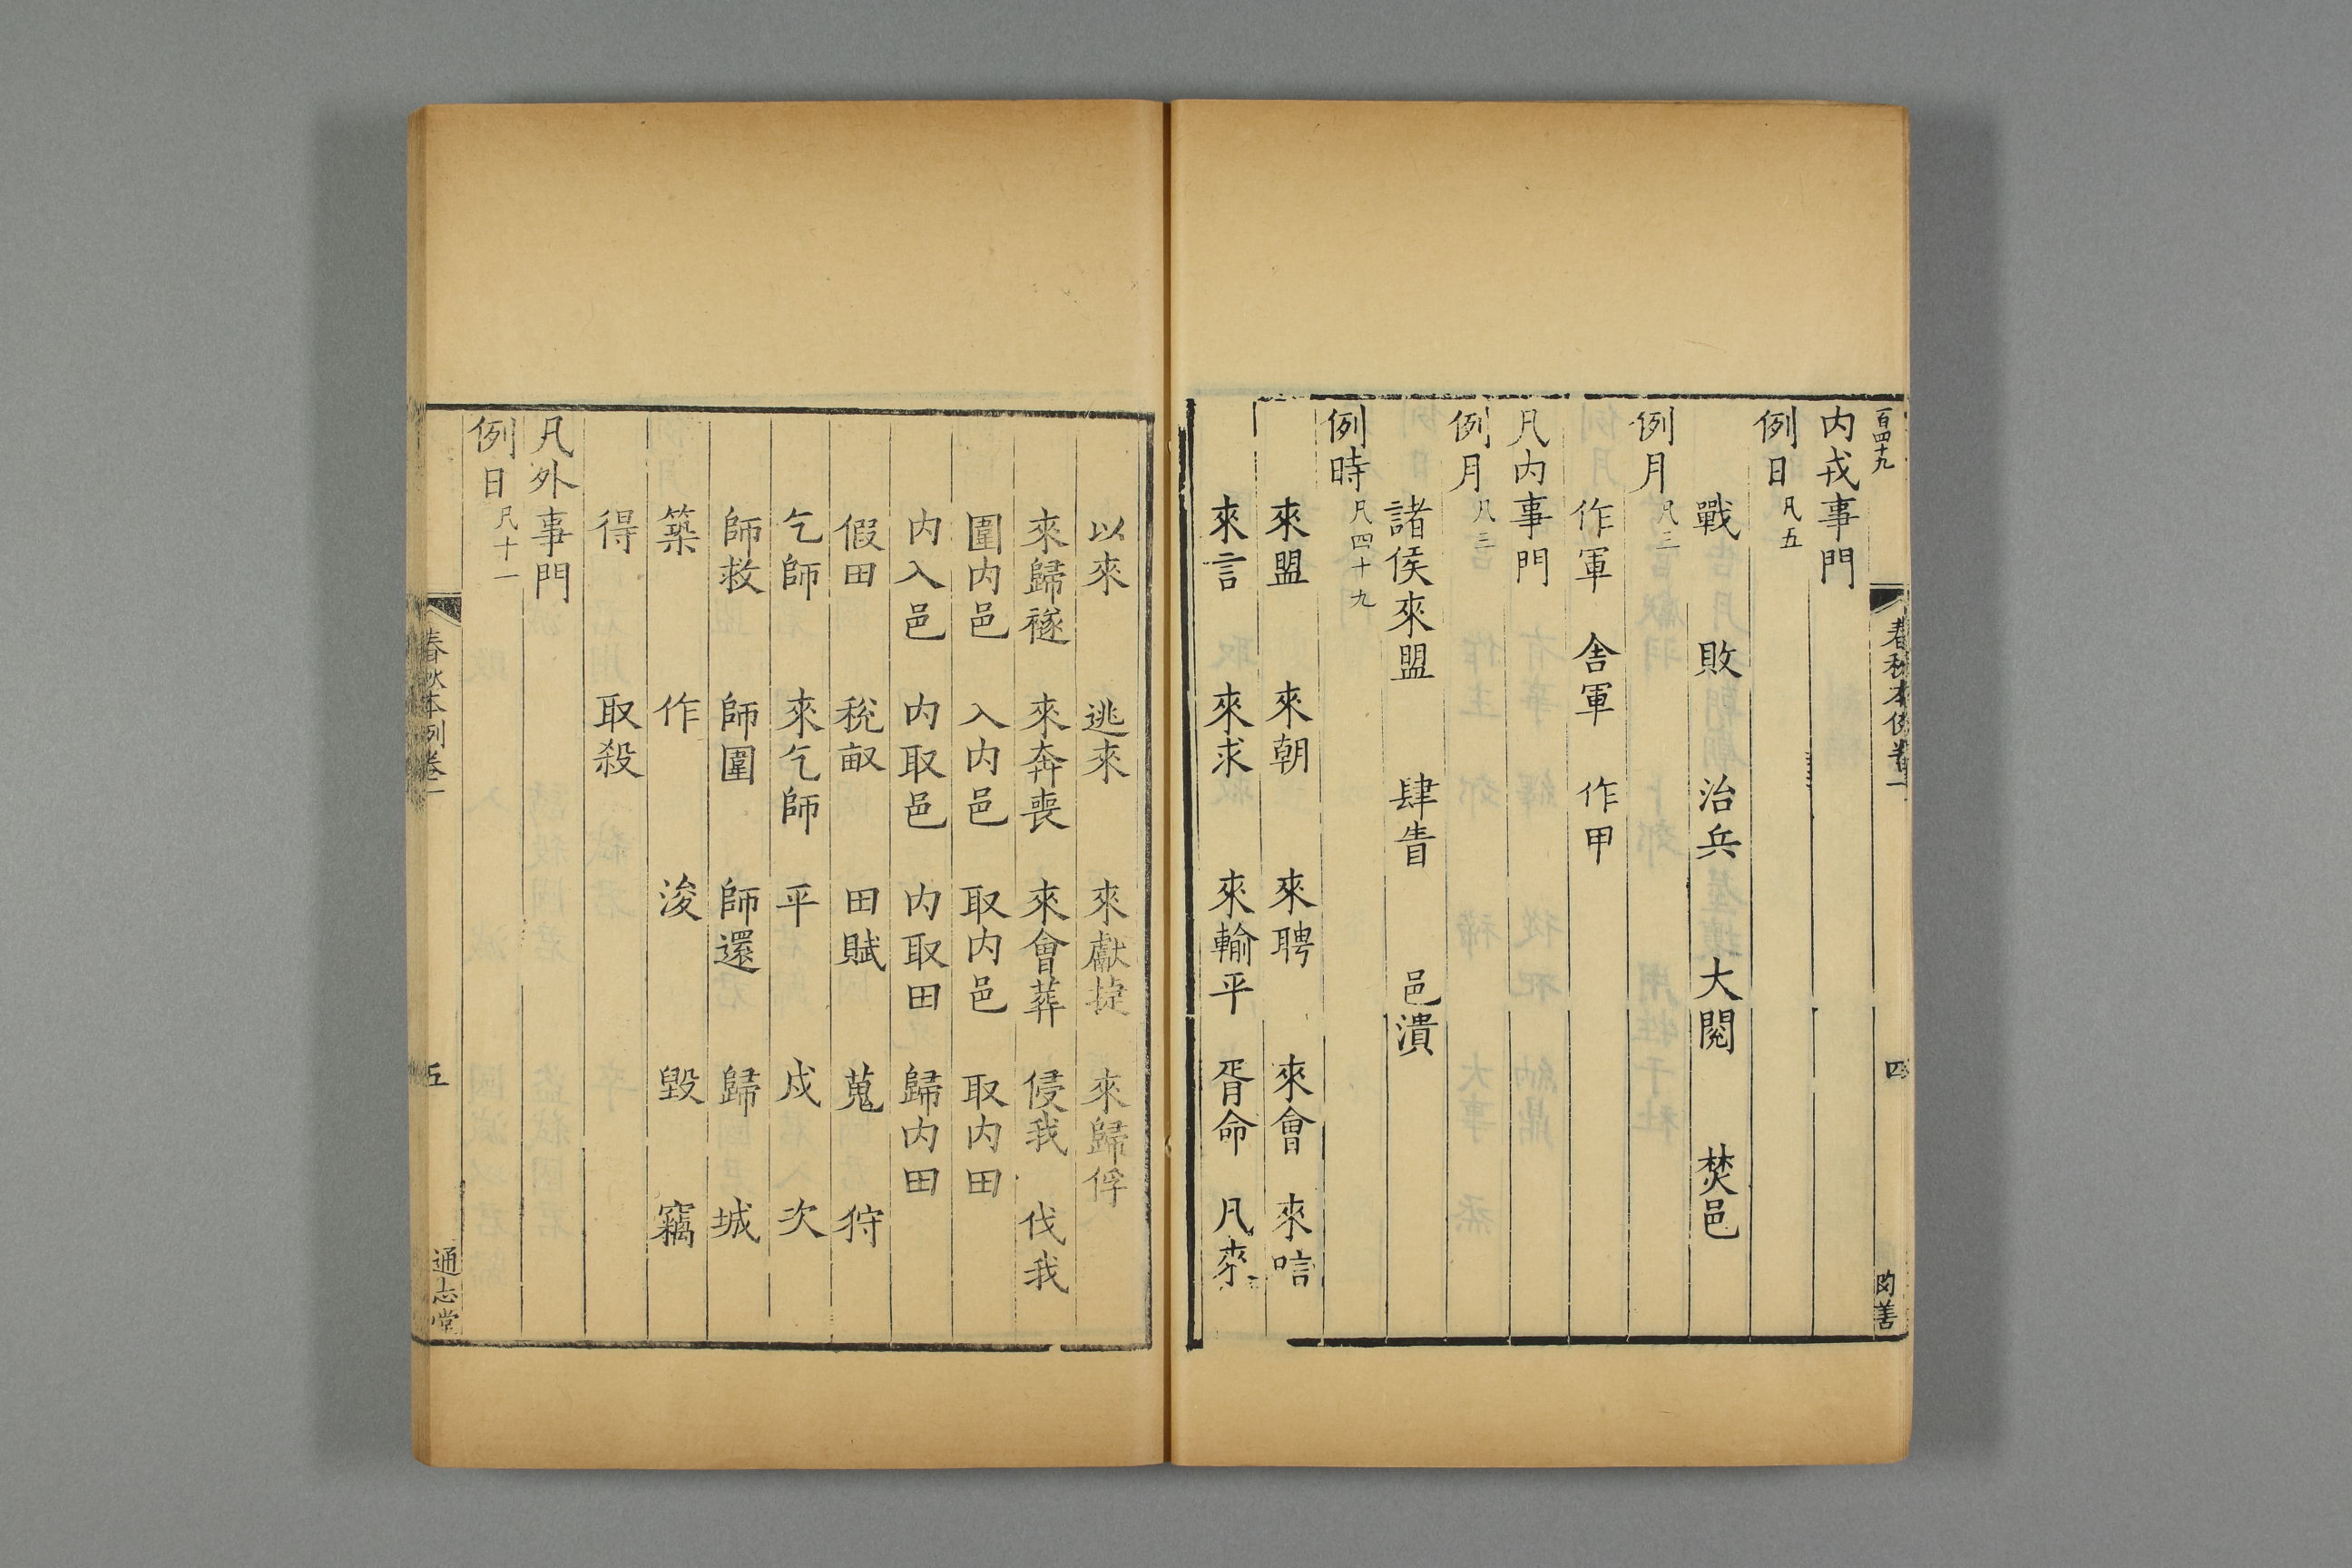 百四十九
春秋本例卷一
四
內戎事門
例日凡五
戰 敗 治兵 大閱 焚邑
例月凡三
作軍 舍軍 作甲
凡內事門
例月凡三
諸侯來盟 肆眚 邑潰
例時凡四十九
來盟 來朝 來聘 來會 來唁
來言 來求 來輸平 胥命 凡來
以來 逃來 來獻捷 來歸俘
來歸禭 來奔喪 來會葬 侵我 伐我
圍內邑 入內邑 取內邑 取內田
內入邑 內取邑 內取田 歸內田
假田 稅畝 田賦 蒐 狩
乞師 來乞師 平 戍 次
師救 師圍 師還 歸 城
築 作 浚 毀 竊
得 取 殺
凡外事門
例日凡十一
春秋本例卷一
五
通志堂